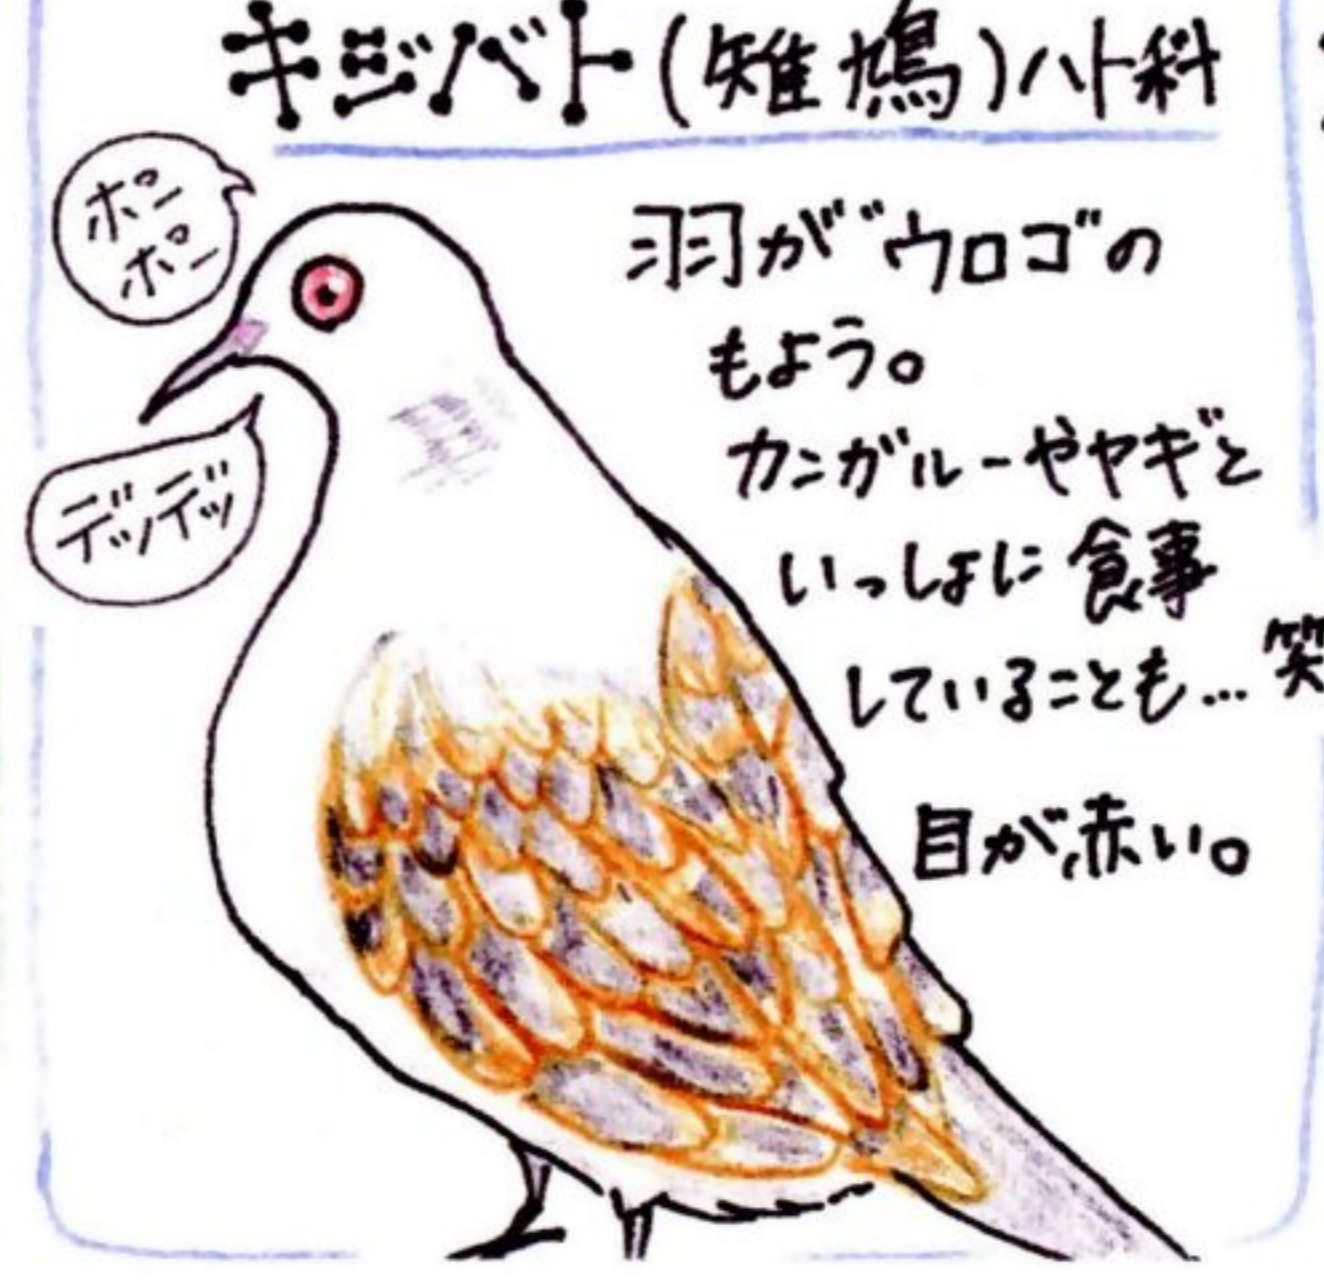 キジバト(雉鳩)ハト科
ポン
ポン
デッデッ
羽が"ウロコ"の
もよう。
カンガルーやヤギと
いっしょに食事
していることも… 笑
目が赤い。